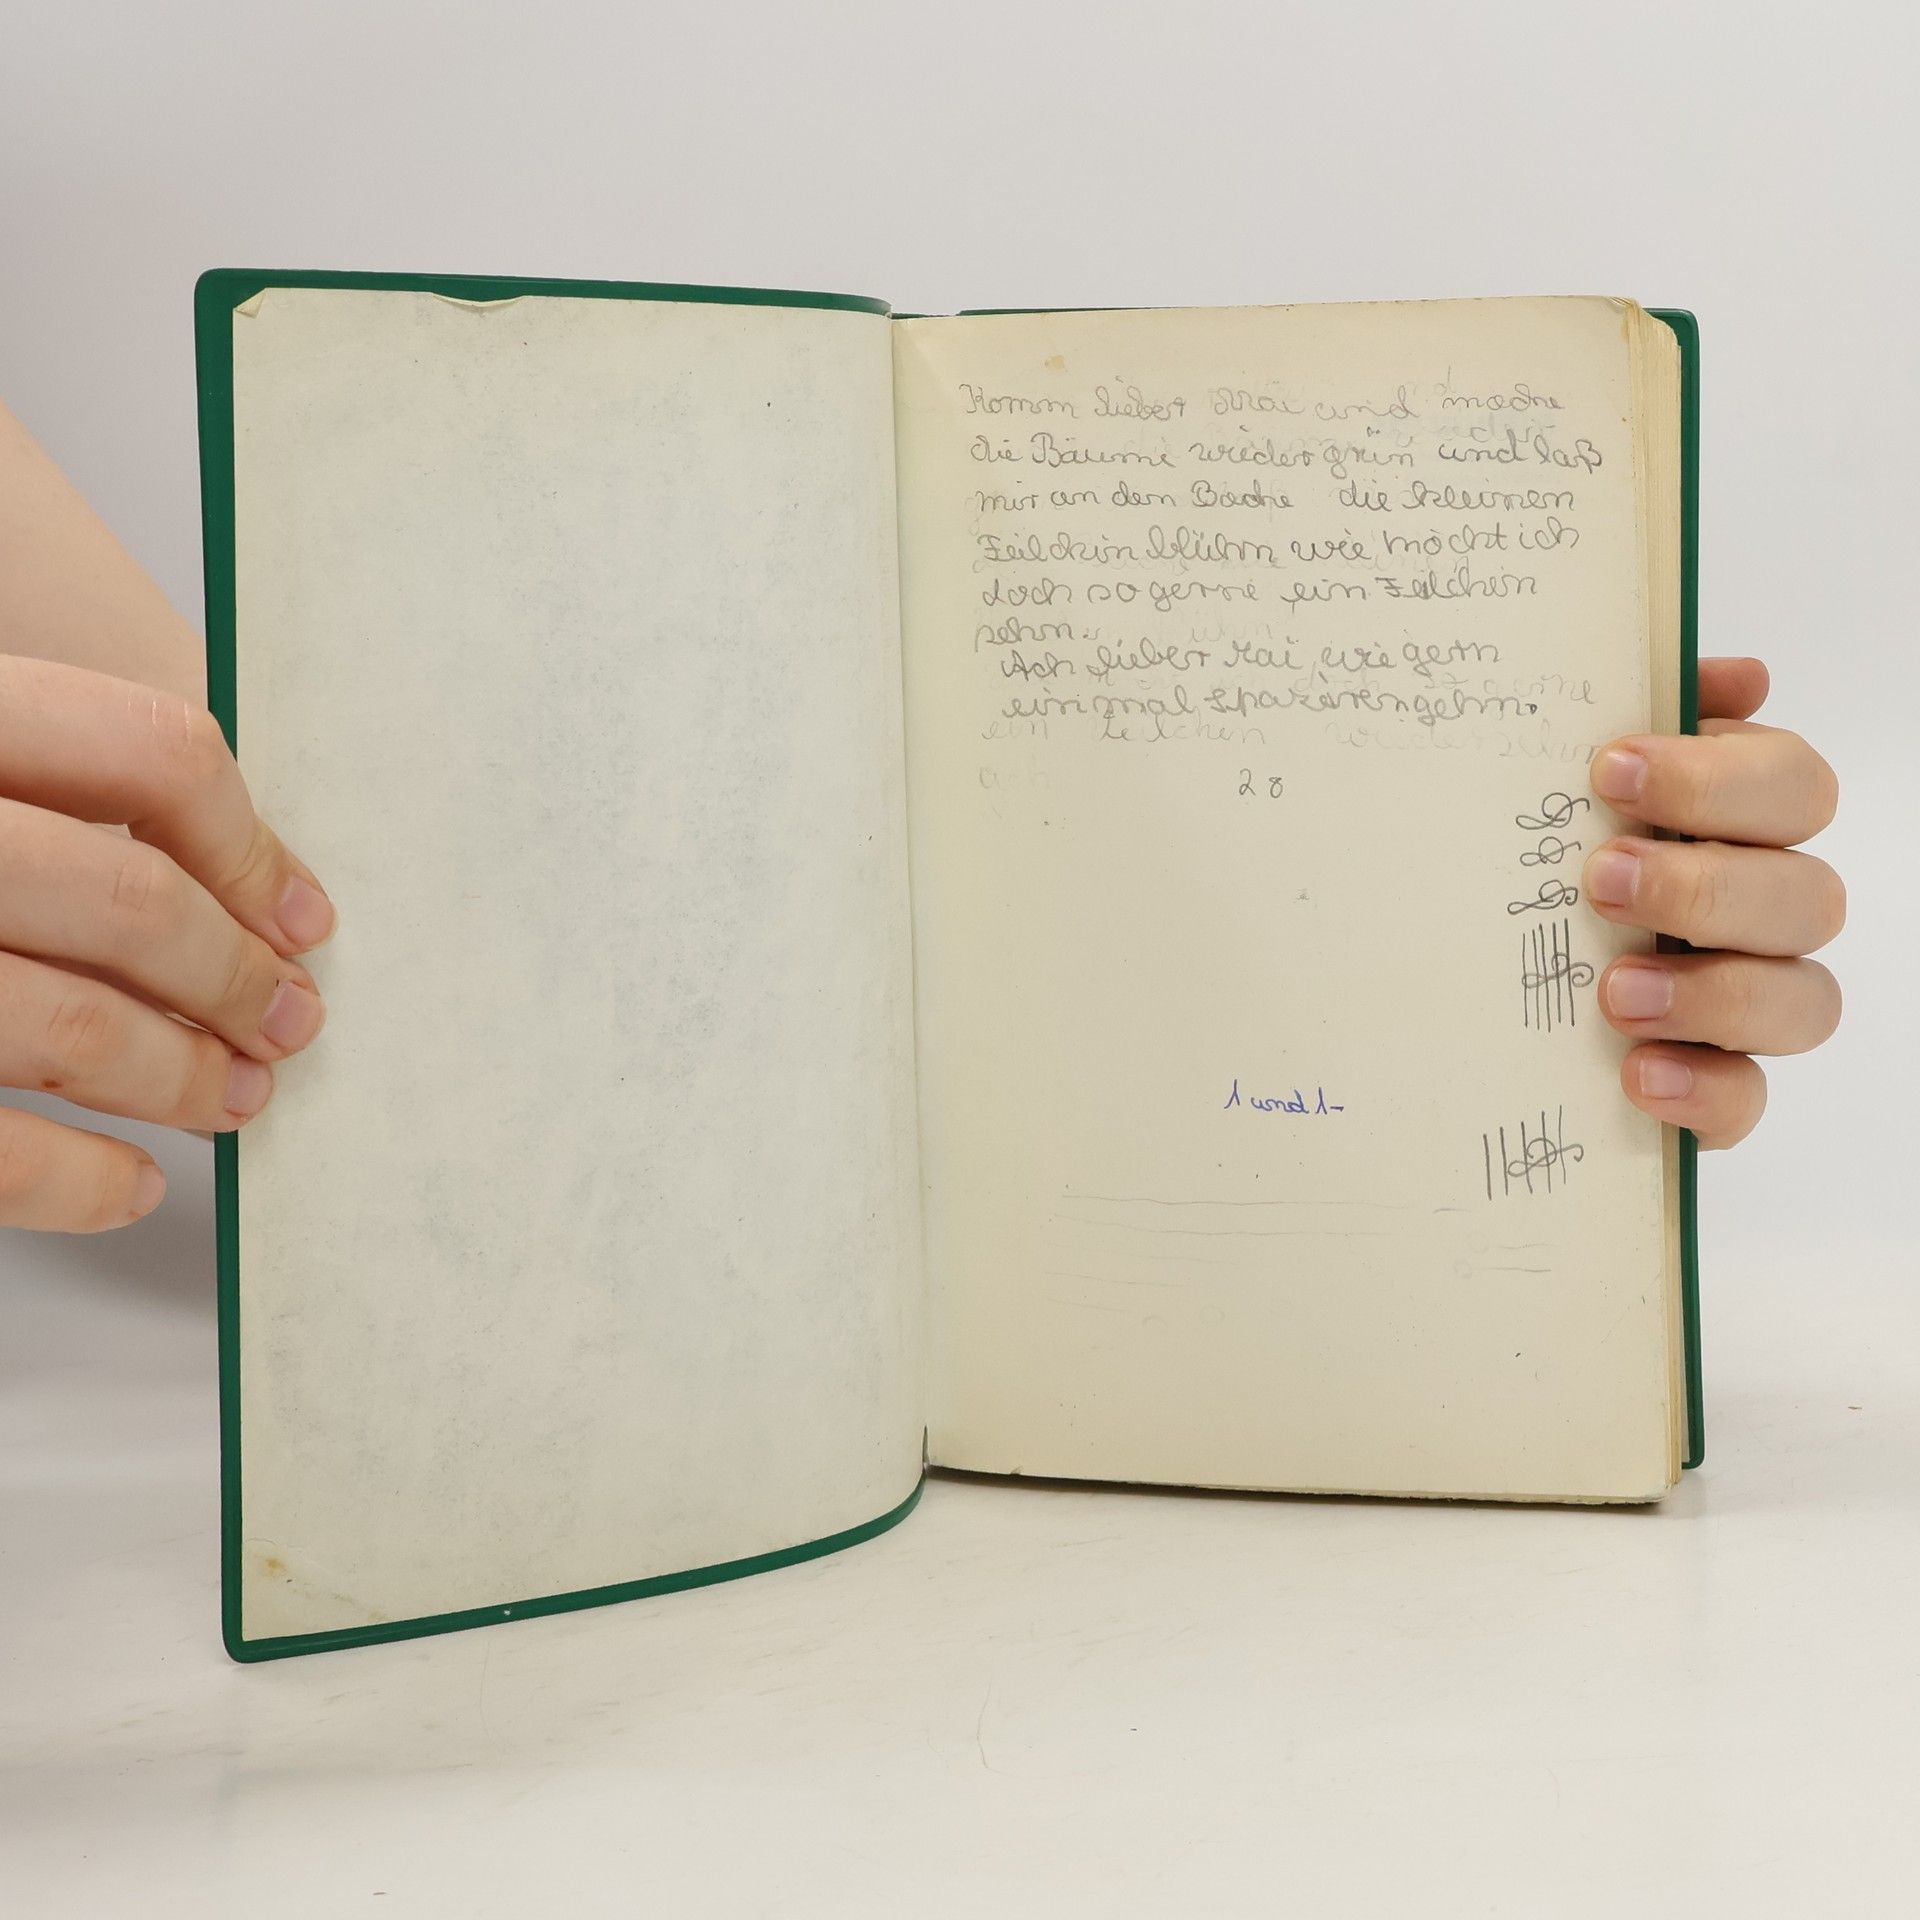 Komm lieber Mai und mache
die Bäume wieder grün und laß
mir an dem Bache die kleinen
Feilchin blühn wie möcht ich
doch so gerne ein Feilchin
sehn.
Ach lieber Mai wie gern
einmal spazieren gehn.
ein Feilchen wieder sehn
ach
28
1 und 1-